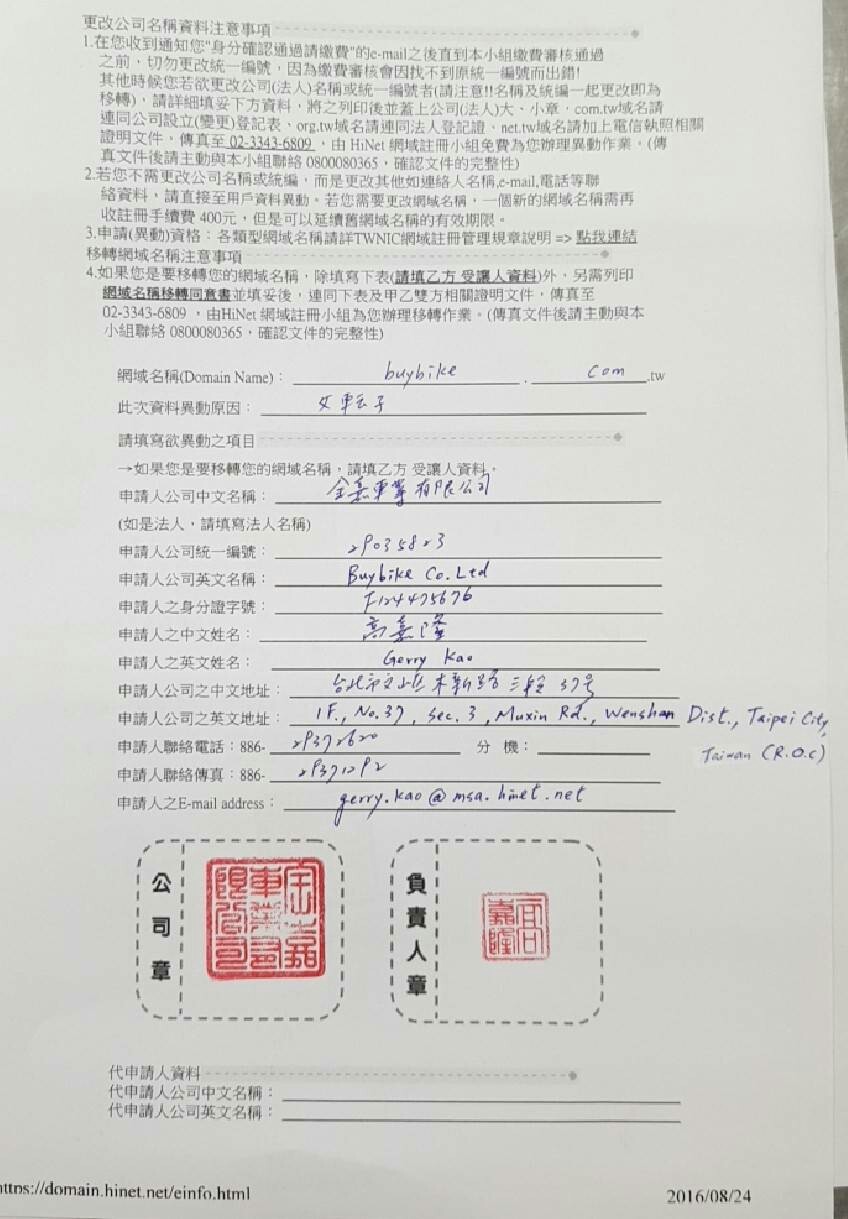 更改公司名稱資料注意事項
1.在您收到通知您"身分確認通過請繳費"的e-mail之後直到本小組繳費審核通過
之前，切勿更改統一編號，因為繳費審核會因找不到原統一編號而出錯!
其他時候您若欲更改公司(法人)名稱或統一編號者(請注意!!名稱及統編一起更改即為
移轉)，請詳細填妥下方資料，將之列印後並蓋上公司(法人)大、小章，com.tw域名請
連同公司設立(變更)登記表、org.tw域名請連同法人登記證、net.tw域名請加上電信執照相關
證明文件，傳真至 02-3343-6809 ，由 HiNet 網域註冊小組免費為您辦理異動作業。(傳
真文件後請主動與本小組聯絡 0800080365，確認文件的完整性)
2.若您不需更改公司名稱或統編，而是更改其他如連絡人名稱,e-mail,電話等聯
絡資料，請直接至用戶資料異動。若您需要更改網域名稱，一個新的網域名稱需再
收註冊手續費 400元，但是可以延續舊網域名稱的有效期限。
3.申請(異動)資格：各類型網域名稱請詳TWNIC網域註冊管理規章說明 => 點我連結
移轉網域名稱注意事項
4.如果您是要移轉您的網域名稱，除填寫下表(請填乙方 受讓人資料)外，另需列印
網域名稱移轉同意書並填妥後，連同下表及甲乙雙方相關證明文件，傳真至
02-3343-6809 ，由HiNet 網域註冊小組為您辦理移轉作業。(傳真文件後請主動與本
小組聯絡 0800080365，確認文件的完整性)
網域名稱(Domain Name)： buybike . com .tw
此次資料異動原因：
請填寫欲異動之項目
→如果您是要移轉您的網域名稱，請填乙方 受讓人資料。
申請人公司中文名稱： 全嘉車業有限公司
(如是法人，請填寫法人名稱)
申請人公司統一編號：
申請人公司英文名稱： Buybike Co. Ltd
申請人之身分證字號： F124475676
申請人之中文姓名： 高嘉隆
申請人之英文姓名： Gerry Kao
申請人公司之中文地址： 台北市文山區木新路三段37号
申請人公司之英文地址： 1F., No.37, Sec. 3, Muxin Rd., Wenshan Dist., Taipei City,
Taiwan (R.O.C)
申請人聯絡電話：886- 29372620 分 機：
申請人聯絡傳真：886- 29371292
申請人之E-mail address： gerry.kao@msa.hinet.net
公司章
負責人章
高嘉隆
代申請人資料
代申請人公司中文名稱：
代申請人公司英文名稱：
https://domain.hinet.net/einfo.html
2016/08/24